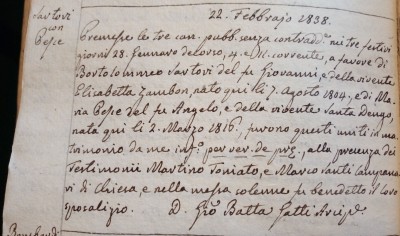 22. Febbrajo 1838.
Sartori
con
Pese
Premesse le tre can. pubb. senza contradd.e nei tre festivi
giorni 28. Gennaro decorso, 4. e 11. corrente, a favore di
Bortolommeo Sartori del fu Giovanni, e della vivente
Elisabetta Zambon, nato qui li 7. Agosto 1804, e di Ma-
ria Pese del fu Angelo, e della vivente Santa Dengo,
nata qui li 2. Marzo 1816, furono questi uniti in ma-
trimonio da me inf.o per ver. de prs., alla presenza dei
Testimonii Martino Toniato, e Marco Santi Campana-
ri di Chiesa, e nella messa solenne fu benedetto il loro
sposalizio. D. Gio Batta Gatti Arcip.e